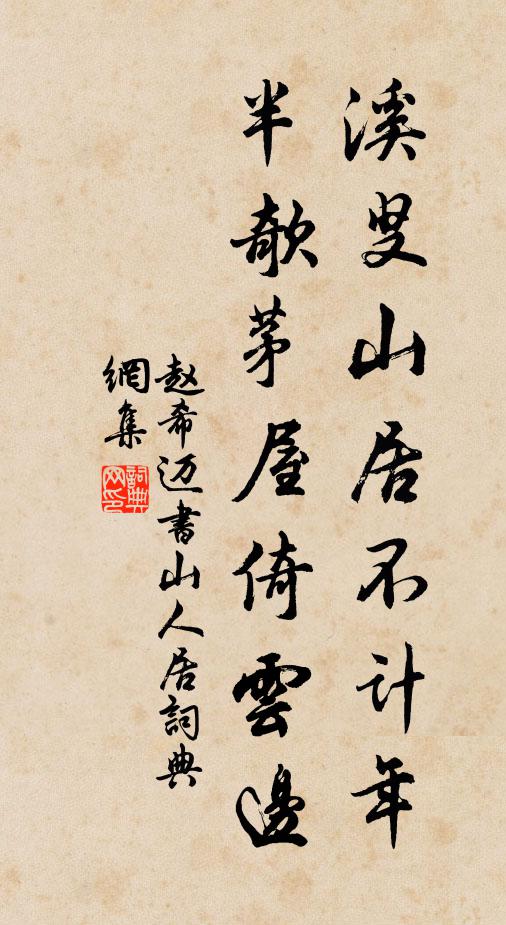 溪叟山居不计年
半欹茅屋倚雲邊
赵希迈書山人居詞典
網集
詞典
网印